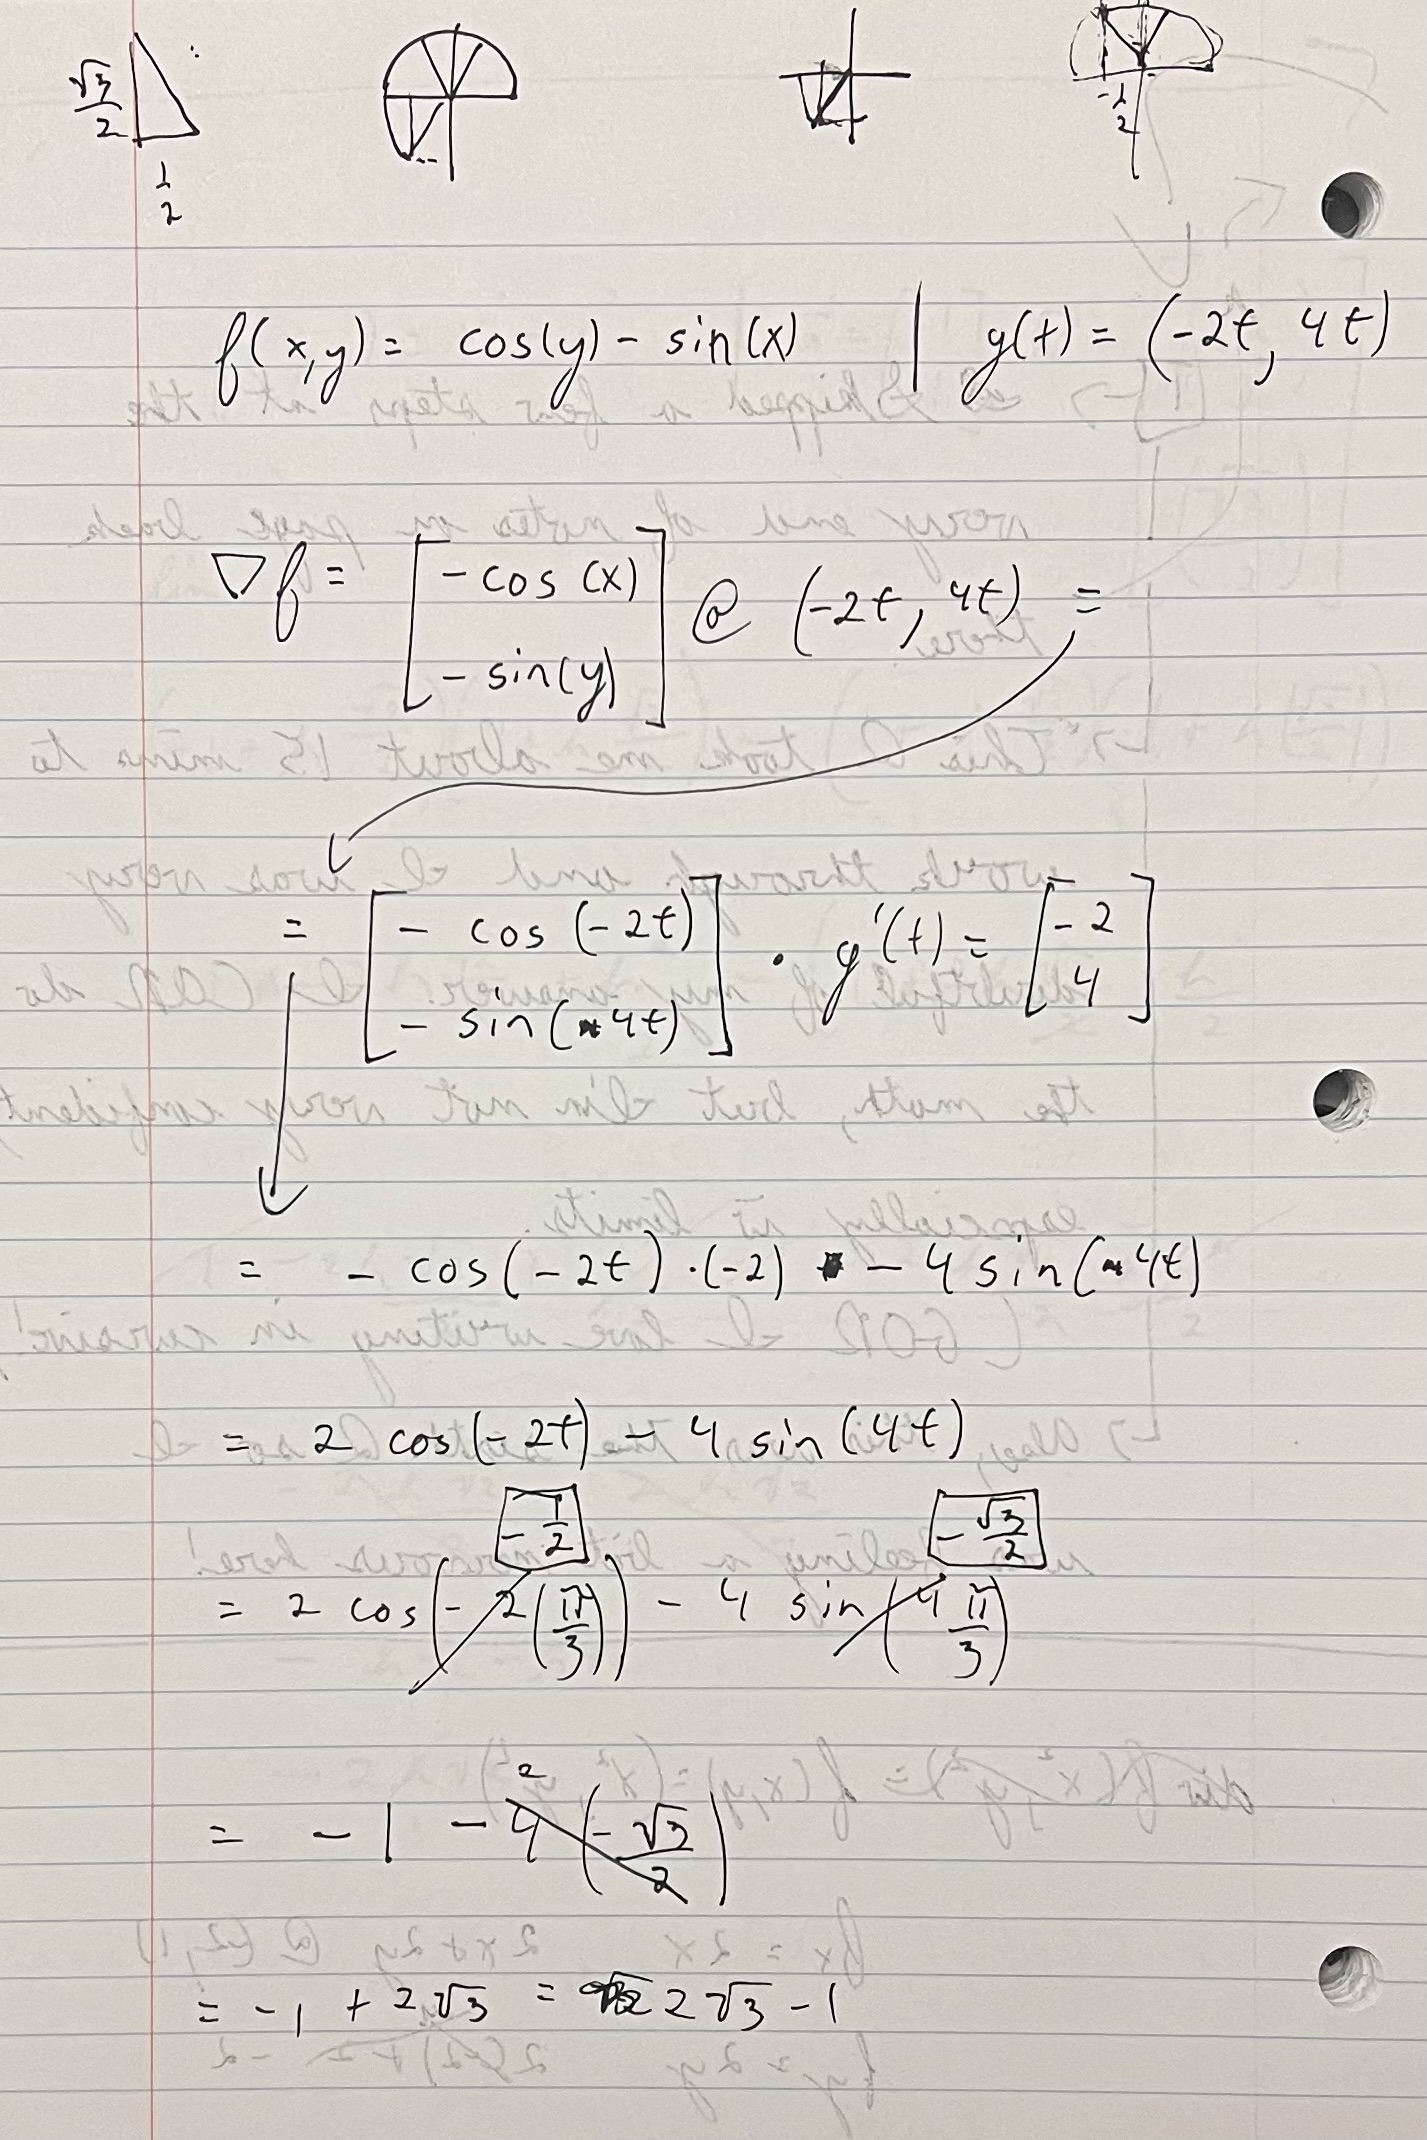 √3/2
1/2
-1/2
f(x,y) = cos(y) - sin(x) | g(t) = (-2t, 4t)
∇f = [-cos(x) -sin(y)] @ (-2t, 4t) =
= [-cos(-2t) -sin(4t)] · g'(t) = [-2 4]
= -cos(-2t)·(-2) - 4 sin(4t)
= 2 cos(-2t) - 4 sin(4t)
-1/2 -√3/2
= 2 cos(-2(π/3)) - 4 sin(4π/3)
2
= -1 - 4(-√3/2)
= -1 + 2√3 = 2√3 - 1